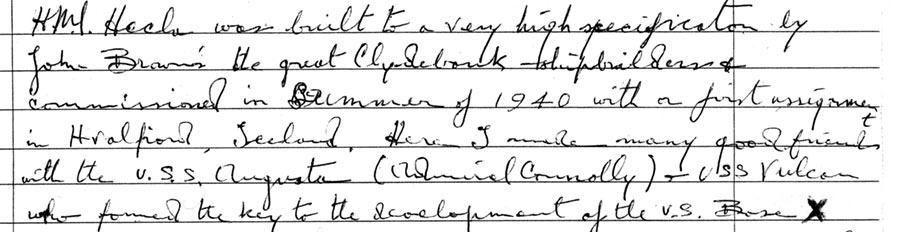 HMS. Hecla was built to a very high specification by
John Brown's the great Clydebank shipbuilders &
commissioned in Summer of 1940 with a first assignment
in Hvalfiord, Iceland. Here I made many good friends
with the U.S.S. Augusta (Admiral Connolly) & USS Vulcan
who formed the key to the development of the U.S. Base X